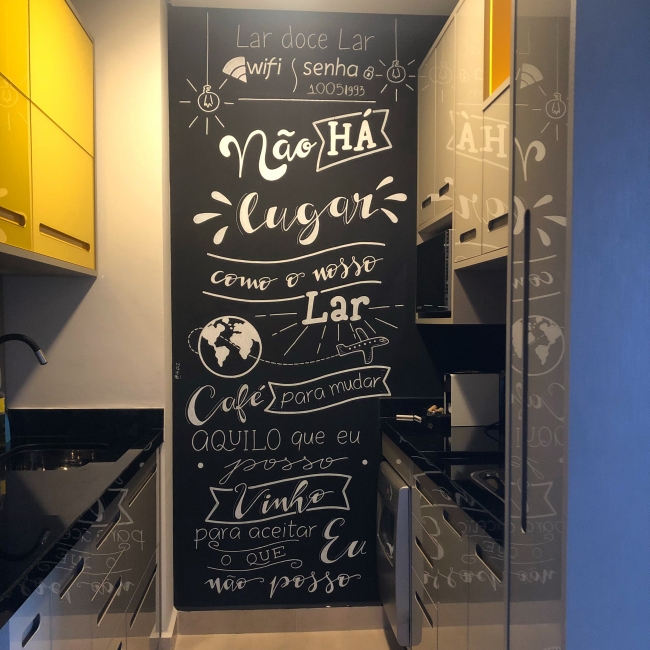 Lar doce Lar
wifi senha
10051993
Não HÁ
lugar
como o nosso
Lar
Café para mudar
AQUILO que eu
posso
Vinho
para aceitar
O QUE Eu
não posso